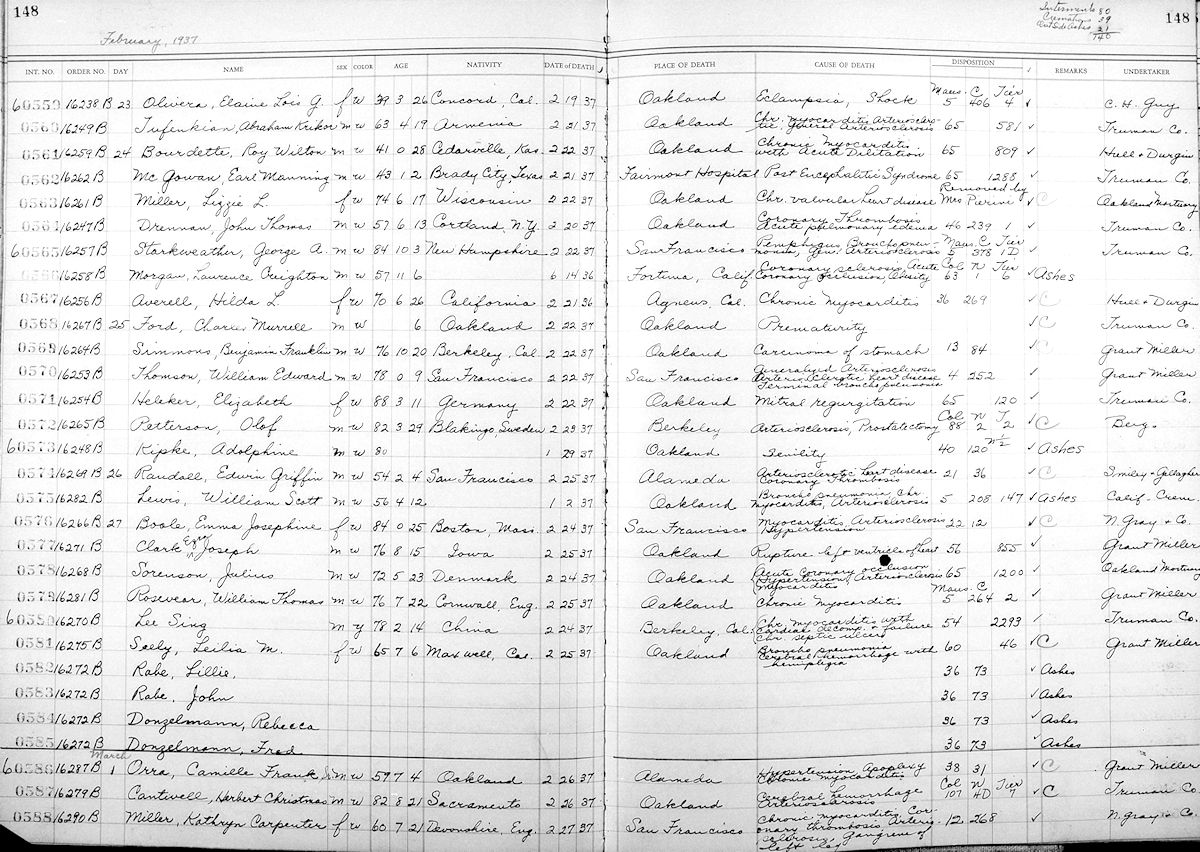 148
February, 1937
Interments 80
Cremations 39
Outside Ashes 21
140
148
INT. NO. ORDER NO. DAY NAME SEX COLOR AGE NATIVITY DATE of DEATH PLACE OF DEATH CAUSE OF DEATH DISPOSITION ✓ REMARKS UNDERTAKER
Maus. C Tier
60559 16238 B 23 Olivera, Elaine Lois G. f w 39 3 26 Concord, Cal. 2 19 37 Oakland Eclampsia, Shock 5 406 4 ✓ C. H. Guy
0560 16249 B Tufenkian, Abraham Krikor m w 63 4 19 Armenia 2 21 37 Oakland Chr. myocarditis, Arterioscler-
otic, General Arteriosclerosis 65 581 ✓ Truman Co.
0561 16259 B 24 Bourdette, Roy Wilton m w 41 0 28 Cedarville, Kas. 2 22 37 Oakland Chronic Myocarditis
with Acute Dilitation 65 809 ✓ Hull & Durgin
0562 16262 B McGowan, Earl Manning m w 43 1 2 Brady City, Texas 2 21 37 Fairmont Hospital Post Encephalitic Syndrome 65 1288 ✓ Truman Co.
Removed by
0563 16261 B Miller, Lizzie L. f w 74 6 17 Wisconsin 2 22 37 Oakland Chr. valvular heart disease Mrs Perine ✓ C Oakland Mortuary
0564 16247 B Drennan, John Thomas m w 57 6 13 Cortland, N.Y. 2 20 37 Oakland Coronary Thrombosis
Acute pulmonary edema 46 239 1 ✓ Truman Co.
Maus. C Tier
60565 16257 B Starkweather, George A. m w 84 10 3 New Hampshire 2 22 37 San Francisco Pemphygus, Bronchopneu-
monia, Gen. Arteriosclerosis 5 378 1D ✓ Truman Co.
Col N Tier
0566 16258 B Morgan, Laurence Creighton m w 57 11 6 6 14 36 Fortuna, Calif. Coronary sclerosis, Acute
Coronary Occlusion, Obesity 63 1 6 ✓ Ashes
0567 16256 B Averell, Hilda L. f w 70 6 26 California 2 21 36 Agnews, Cal. Chronic Myocarditis 36 269 ✓ C Hull & Durgin
0568 16267 B 25 Ford, Charles Murrell m w 6 Oakland 2 22 37 Oakland Prematurity ✓ C Truman Co.
0569 16264 B Simmons, Benjamin Franklin m w 76 10 20 Berkeley, Cal. 2 22 37 Oakland Carcinoma of stomach 13 84 ✓ C Grant Miller
0570 16253 B Thomson, William Edward m w 78 0 9 San Francisco 2 22 37 San Francisco Generalized Arteriosclerosis
Arterio Sclerotic heart disease
Terminal broncho pneumonia 4 252 ✓ Grant Miller
0571 16254 B Heleker, Elizabeth f w 88 3 11 Germany 2 22 37 Oakland Mitral regurgitation 65 120 ✓ Truman Co.
Col N T
0572 16265 B Petterson, Olof m w 82 3 29 Blakinge, Sweden 2 23 37 Berkeley Arteriosclerosis, Prostatectomy 88 2 2 ✓ C Berg.
60573 16248 B Kipke, Adolphine m w 80 1 29 37 Oakland Senility 40 120 N½ ✓ Ashes
0574 16269 B 26 Randall, Edwin Griffin m w 54 2 4 San Francisco 2 25 37 Alameda Arteriosclerotic heart disease
Coronary Thrombosis 21 36 ✓ C Smiley & Gallagher
0575 16282 B Lewis, William Scott m w 56 4 12 1 2 37 Oakland Broncho pneumonia, Chr.
myocarditis, Arteriosclerosis 5 208 147 ✓ Ashes Calif. Crem.
0576 16266 B 27 Boole, Emma Josephine f w 84 0 25 Boston, Mass. 2 24 37 San Francisco Myocarditis, Arteriosclerosis
Hypertension 22 12 ✓ C N. Gray & Co.
0577 16271 B Clark, Ezra Joseph m w 76 8 15 Iowa 2 25 37 Oakland Rupture left ventricle of heart 56 855 ✓ Grant Miller
0578 16268 B Sorenson, Julius m w 72 5 23 Denmark 2 24 37 Oakland Acute Coronary occlusion
Hypertension, Arteriosclerosis
Myocarditis 65 1200 ✓ Oakland Mortuary
Maus. C
0579 16281 B Rosevear, William Thomas m w 76 7 22 Cornwall, Eng. 2 25 37 Oakland Chronic Myocarditis 5 264 2 ✓ Grant Miller
60580 16270 B Lee Sing m y 78 2 14 China 2 24 37 Berkeley, Cal. Chr. Myocarditis with
Cardiac Decomp. & failure
Chr. septic ulcers 54 2293 ✓ Truman Co.
0581 16275 B Seely, Leilia M. f w 65 7 6 Maxwell, Cal. 2 25 37 Oakland Broncho pneumonia
Cerebral hemorrhage with
hemiplegia 60 46 ✓ C Grant Miller
0582 16272 B Rabe, Lillie, 36 73 ✓ Ashes
0583 16272 B Rabe, John 36 73 ✓ Ashes
0584 16272 B Donzelmann, Rebecca 36 73 ✓ Ashes
0585 16272 B Donzelmann, Fred 36 73 ✓ Ashes
March
60586 16287 B 1 Orra, Camille Frank, Sr. m w 59 7 4 Oakland 2 26 37 Alameda Hypertension, Apoplexy
Chronic Myocarditis 38 31 ✓ C Grant Miller
Col N Tier
0587 16279 B Cantwell, Herbert Christmas m w 82 8 21 Sacramento 2 26 37 Oakland Cerebral hemorrhage
Arteriosclerosis 107 4D 7 ✓ C Truman Co
0588 16290 B Miller, Kathryn Carpenter f w 60 7 21 Devonshire, Eng. 2 27 37 San Francisco Chronic myocarditis, Cor-
onary thrombosis, Arterio-
sclerosis, Gangrene of
left leg 12 268 ✓ N. Gray & Co.